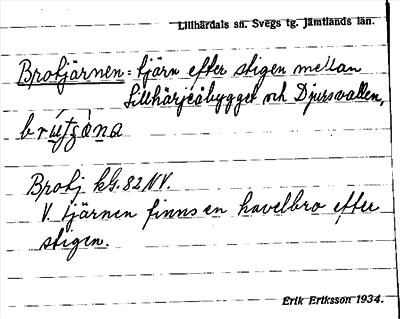 Lillhärdals sn. Svegs tg. Jämtlands län.
Brotjärnen: tjärn efter stigen mellan
Lillhärjeåbygget och Djursvallen,
Brotj kG. 82 NV.
V. tjärnen finns en kavelbro efter
stigen.
Erik Eriksson 1934.